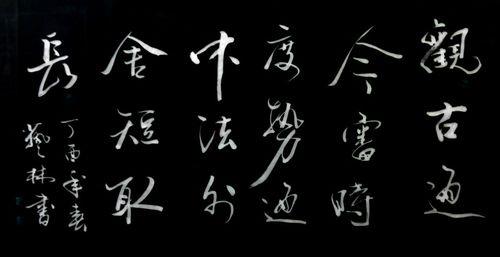 觀古通
今審時
度勢通
中法外
舍短取
長
丁酉年春
林書